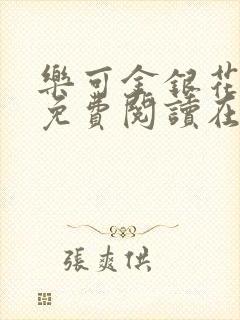 樂可金銀花
免費閱讀在
張爽供